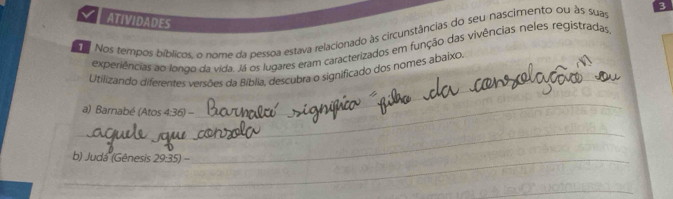 3
ATIVIDADES
1 Nos tempos bíblicos, o nome da pessoa estava relacionado às circunstâncias do seu nascimento ou às suas
experiências ao longo da vida. Já os lugares eram caracterizados em função das vivências neles registradas.
Utilizando diferentes versões da Bíblia, descubra o significado dos nomes abaixo.
a) Barnabé (Atos 4:36) – Barnabé significa "filho da consolação" ou
aquele que consola
b) Judá (Gênesis 29:35) –